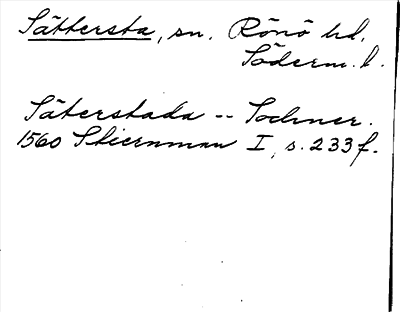 Sättersta, sn. Rönö hd.
Söderm. l.
Säterstada -- Sochner.
1560 Stiernman I, s. 233 f.